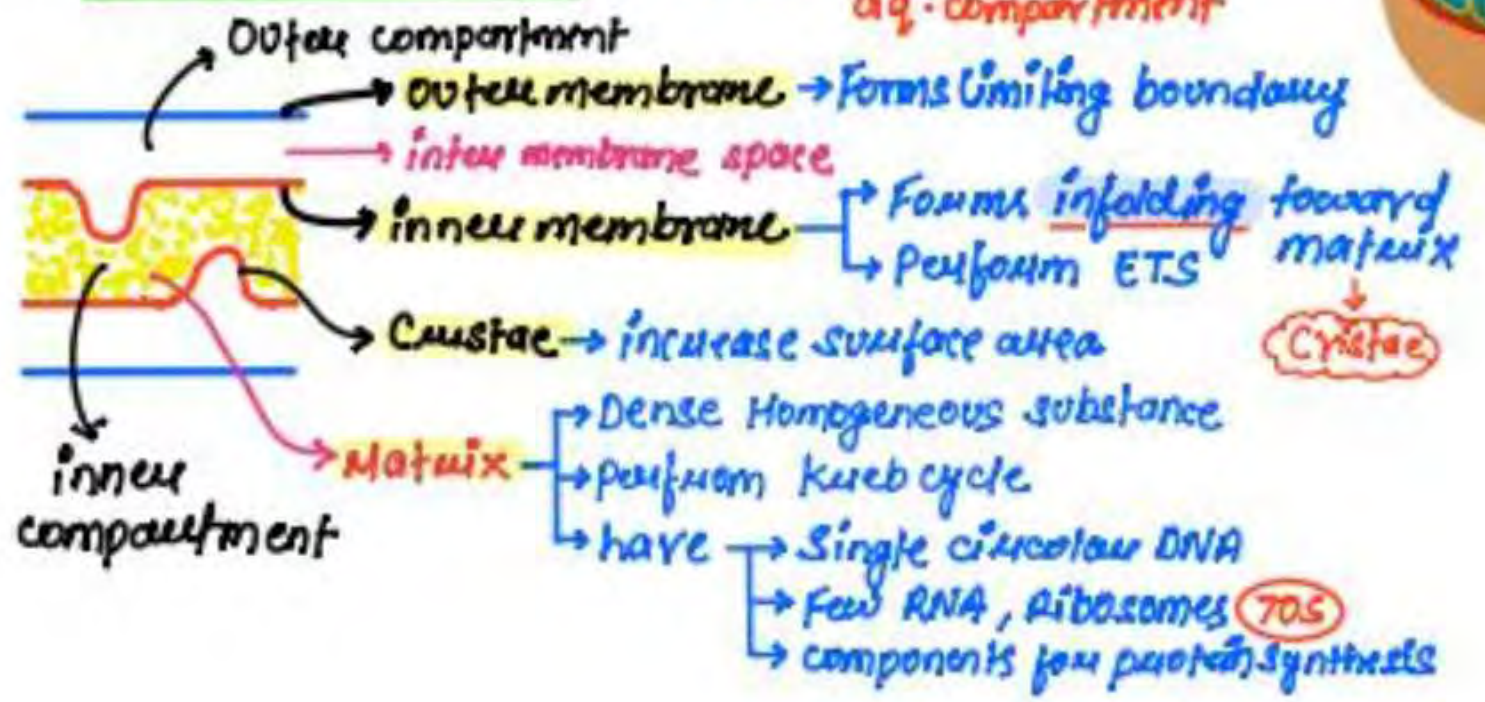 aq. compartment
Outer compartment
outer membrane → Forms limiting boundary
inter membrane space
inner membrane → Forms infolding toward
matrix
→ Perform ETS
Cristae
Cristae → increase surface area
Matrix → Dense Homogeneous substance
→ perfrom kreb cycle
→ have → Single circolar DNA
→ Few RNA, Ribosomes 70S
→ components for protein synthesis
inner
compartment